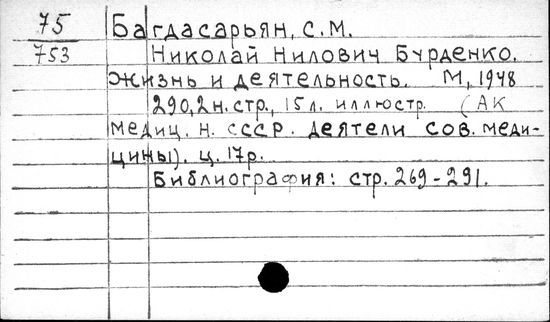 75
753
Багдасарьян, С.М.
Николай Нилович Бурденко.
Жизнь и деятельность. М, 1948
290, 2 н. стр., 15 л. иллюстр. (Ак
медиц. н. СССР. Деятели сов. меди-
цины). ц. 17 р.
Библиография: стр. 269-291.